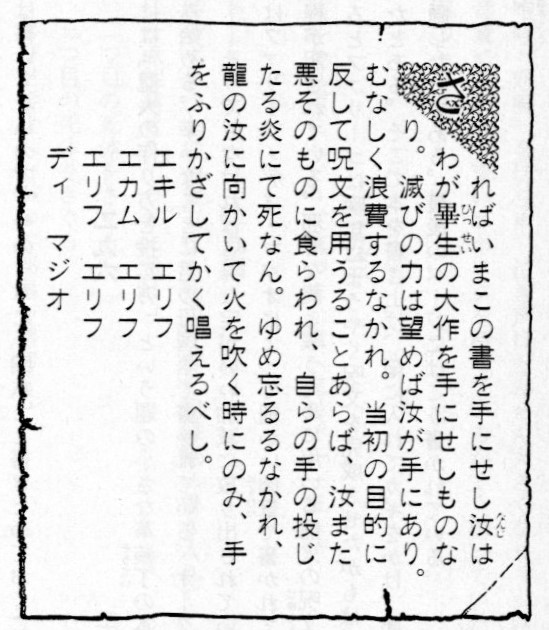 さればいまこの書を手にせし汝は
わが畢生の大作を手にせしものな
り。滅びの力は望めば汝が手にあり。
むなしく浪費するなかれ。当初の目的に
反して呪文を用うることあらば、汝また
悪そのものに食らわれ、自らの手の投じ
たる炎にて死なん。ゆめ忘るるなかれ、
龍の汝に向かいて火を吹く時にのみ、手
をふりかざしてかく唱えるべし。
エキル　エリフ
エカム　エリフ
エリフ　エリフ
ディ　マジオ